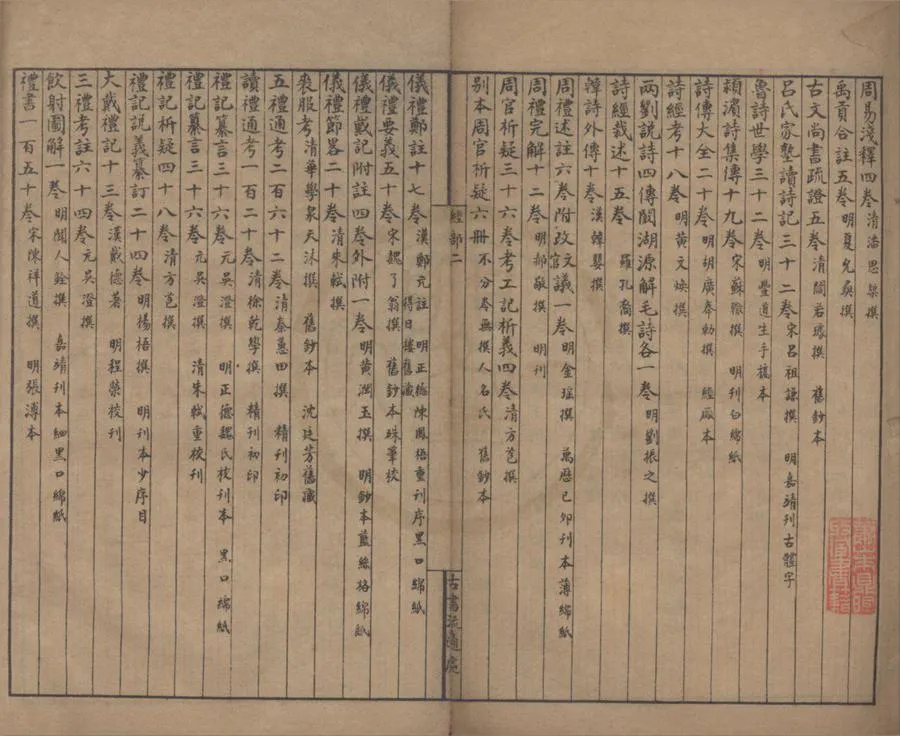 周易淺釋四卷清潘思榘撰
禹貢合註五卷明夏允彝撰
古文尚書疏證五卷清閻若璩撰 舊鈔本
呂氏家塾讀詩記三十二卷宋呂祖謙撰 明嘉靖刊古體字
魯詩世學三十二卷明豐道生手稿本
潁濱詩集傳十九卷宋蘇轍撰 明刊白綿紙
詩傳大全二十卷明胡廣奉勅撰 經厰本
詩經考十八卷明黃文煥撰
兩劉說詩四傳闡湖源解毛詩各一卷明劉振之撰
詩經裁述十五卷 羅孔裔撰
韓詩外傳十卷漢韓嬰撰
周禮述註六卷附改官文議一卷明金瑤撰 萬歷己卯刊本薄綿紙
周禮完解十二卷明郝敬撰 明刊
周官析疑三十六卷考工記析義四卷清方苞撰
別本周官析疑六冊不分卷無撰人名氏 舊鈔本
經部二
古書流通處
儀禮鄭註十七卷漢鄭元註 明正德陳鳳梧重刊序黑口綿紙
儀禮要義五十卷宋魏了翁撰 得月樓舊藏 舊鈔本珠筆校
儀禮戴記附註四卷外附一卷明黃潤玉撰 明鈔本藍絲格綿紙
儀禮節畧二十卷清朱軾撰
喪服考清華學泉天沐撰 舊鈔本 沈廷芳舊藏
五禮通考二百六十二卷清秦蕙田撰 精刊初印
讀禮通考一百二十卷清徐乾學撰 精刊初印
禮記纂言三十六卷元吳澄撰 明正德魏氏校刊本 黑口綿紙
禮記纂言三十六卷元吳澄撰 清朱軾重校刊
禮記析疑四十八卷清方苞撰
禮記說義纂訂二十四卷明楊梧撰 明刊本少序目
大戴禮記十三卷漢戴德著 明程榮校刊
三禮考註六十四卷元吳澄撰
飲射圖解一卷明聞人詮撰 嘉靖刊本細黑口綿紙
禮書一百五十卷宋陳祥道撰 明張溥本